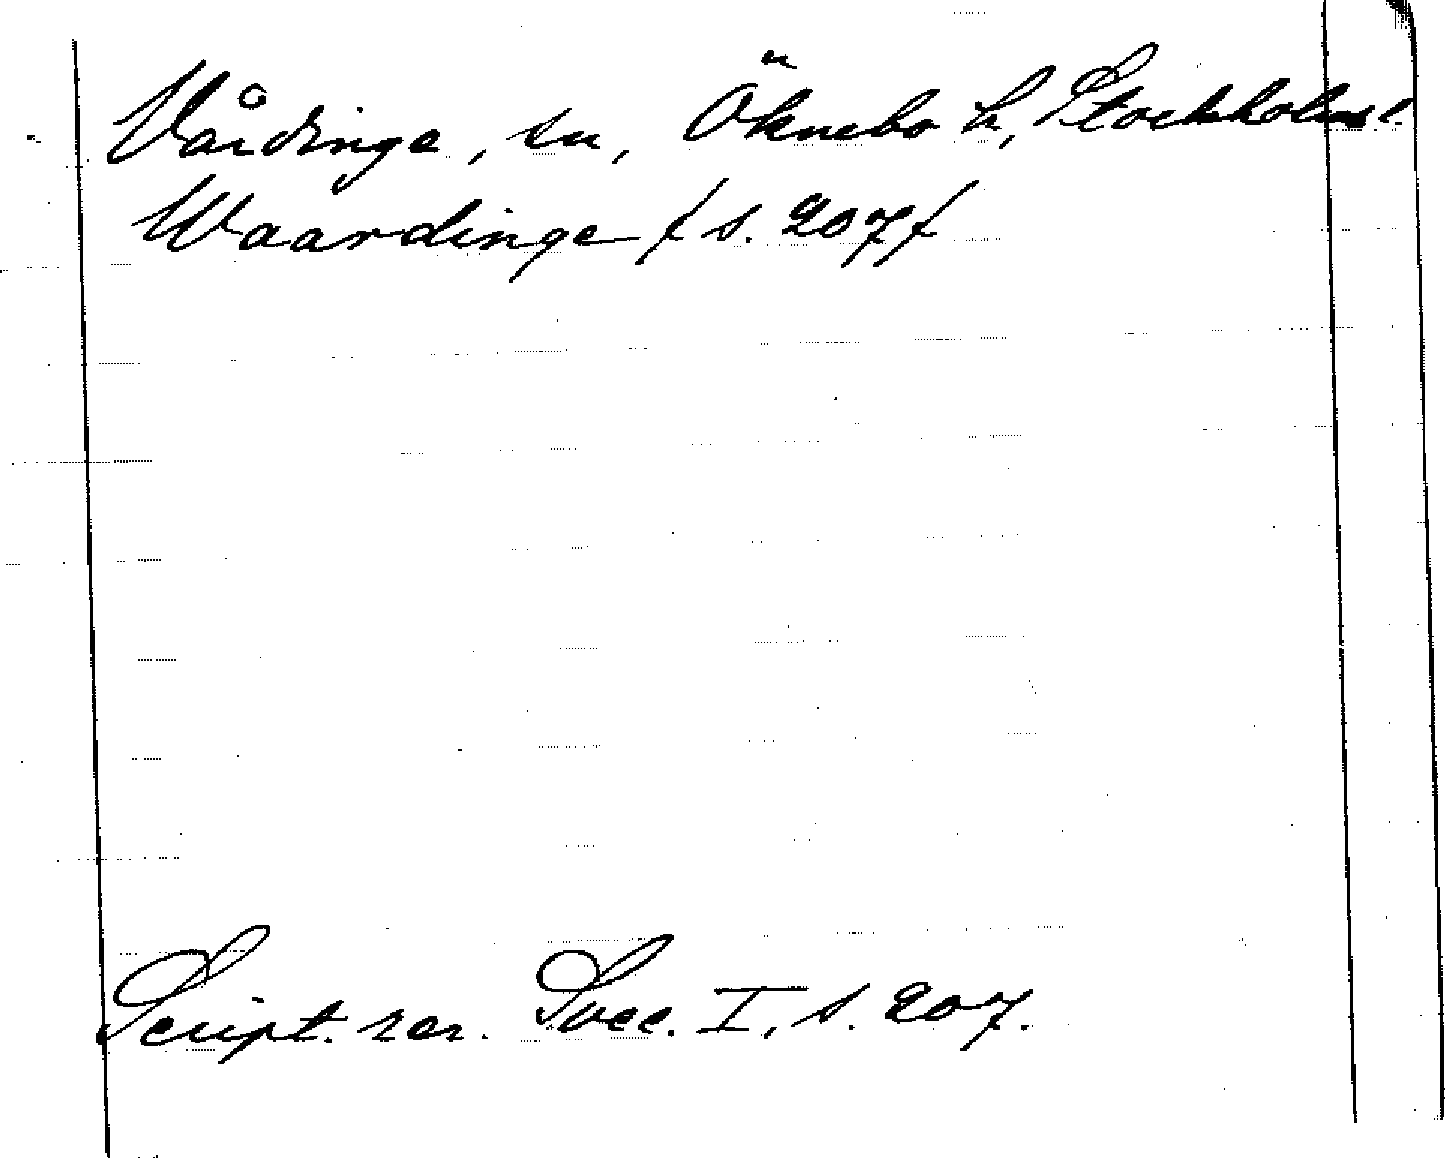 Vårdinge, sn, Öknebo h, Stockholms l.
Waardinge / s. 207/
Script. rer. Svec. I, s. 207.